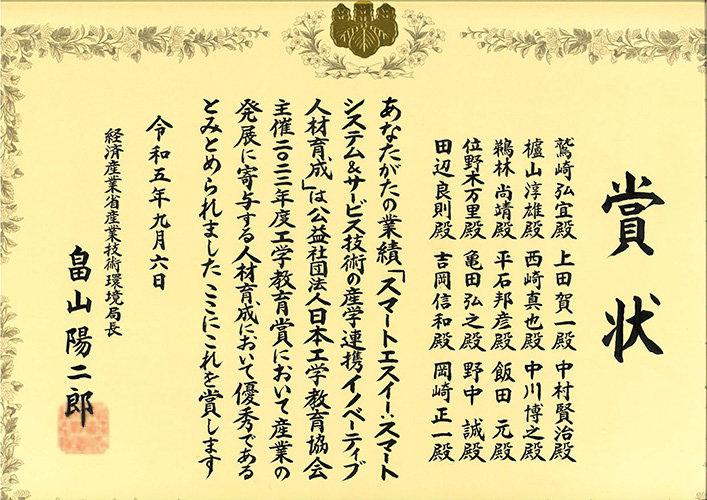 賞状
鷲崎弘宜殿 上田賀一殿 中村賢治殿
櫨山淳雄殿 西崎真也殿 中川博之殿
鵜林尚靖殿 平石邦彦殿 飯田元殿
位野木万里殿 亀田弘之殿 野中誠殿
田辺良則殿 吉岡信和殿 岡崎正一殿
あなたがたの業績「スマートエスイー:スマート
システム&サービス技術の産学連携イノベーティブ
人材育成」は公益社団法人日本工学教育協会
主催二〇二二年度工学教育賞において産業の
発展に寄与する人材育成において優秀である
とみとめられました ここにこれを賞します
令和五年九月六日
経済産業省産業技術環境局長
畠山陽二郎